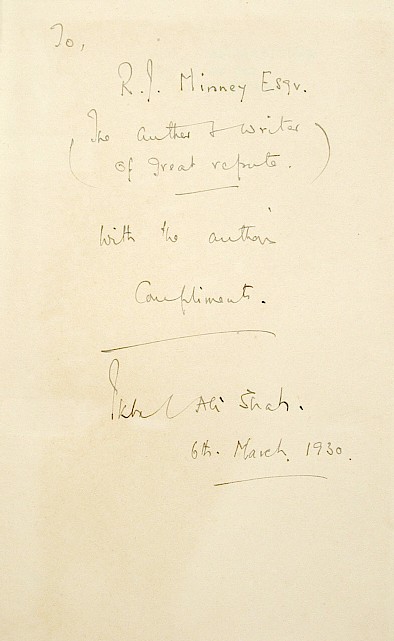 To,
R.J. Minney Esqr.
(The author & writer
of great repute.)
With the author's
Compliments.
Ikbal Ali Shah.
6th. March. 1930.